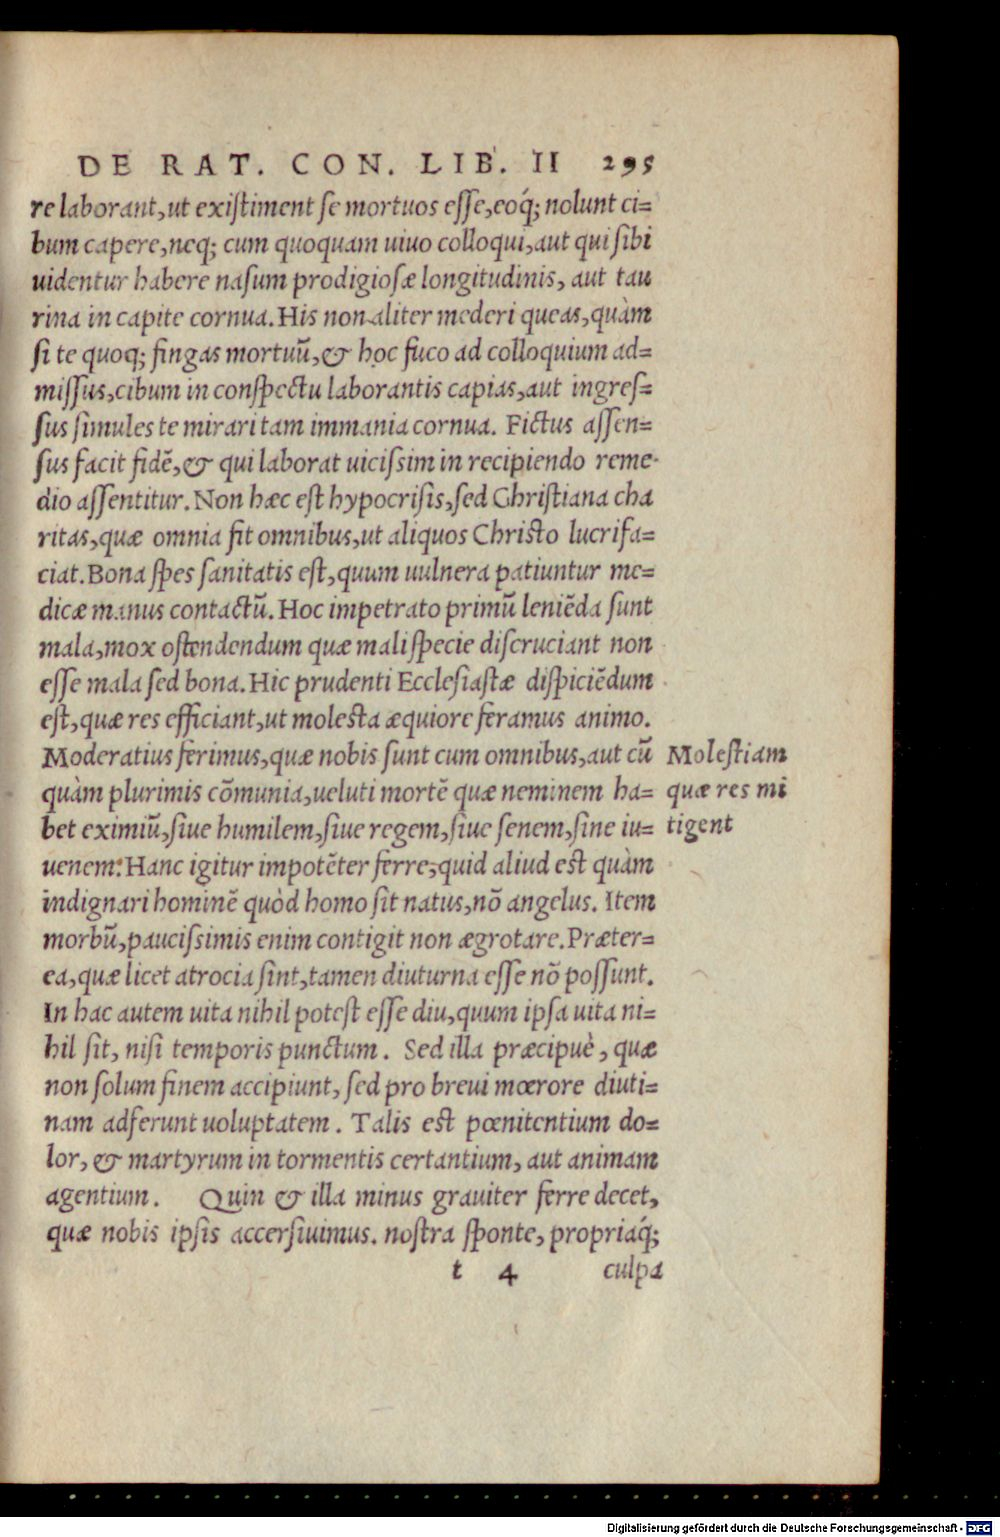 DE RAT. CON. LIB. II 295
re laborant,ut exiſtiment ſe mortuos eſſe,eoq́; nolunt ci=
bum capere,neq; cum quoquam uiuo colloqui,aut qui ſibi
uidentur habere naſum prodigioſæ longitudinis, aut tau
rina in capite cornua.His non aliter mederi queas,quàm
ſi te quoq; fingas mortuũ,& hoc fuco ad colloquium ad=
miſſus,cibum in conſpectu laborantis capias,aut ingreſ=
ſus ſimules te mirari tam immania cornua. Fictus aſſen=
ſus facit fidẽ,& qui laborat uiciſsim in recipiendo reme-
dio aſſentitur.Non hæc eſt hypocriſis,ſed Chriſtiana cha
ritas,quæ omnia fit omnibus,ut aliquos Chriſto lucrifa=
ciat.Bona ſpes ſanitatis eſt,quum uulnera patiuntur me=
dicæ manus contactũ.Hoc impetrato primũ leniẽda ſunt
mala,mox oſtendendum quæ mali ſpecie diſcruciant non
eſſe mala ſed bona.Hic prudenti Eccleſiaſtæ diſpiciẽdum
eſt,quæ res efficiant,ut moleſta æquiore feramus animo.
Moderatius ferimus,quæ nobis ſunt cum omnibus,aut cũ
quàm plurimis cõmunia,ueluti mortẽ quæ neminem ha=
bet eximiũ,ſiue humilem,ſiue regem,ſiue ſenem,ſine iu=
uenem:Hanc igitur impotẽter ferre,quid aliud eſt quàm
indignari hominẽ quòd homo ſit natus,nõ angelus. Item
morbũ,pauciſsimis enim contigit non ægrotare.Præter=
ea,quæ licet atrocia ſint,tamen diuturna eſſe nõ poſſunt.
In hac autem uita nihil poteſt eſſe diu,quum ipſa uita ni=
hil ſit, niſi temporis punctum. Sed illa præcipuè, quæ
non ſolum finem accipiunt, ſed pro breui mœrore diuti=
nam adferunt uoluptatem. Talis eſt pœnitentium do=
lor, & martyrum in tormentis certantium, aut animam
agentium. Quin & illa minus grauiter ferre decet,
quæ nobis ipſis accerſiuimus. noſtra ſponte, propriaq́;
t 4 culpa
Moleſtiam
quæ res mi
tigent
Digitalisierung gefördert durch die Deutsche Forschungsgemeinschaft - DFG